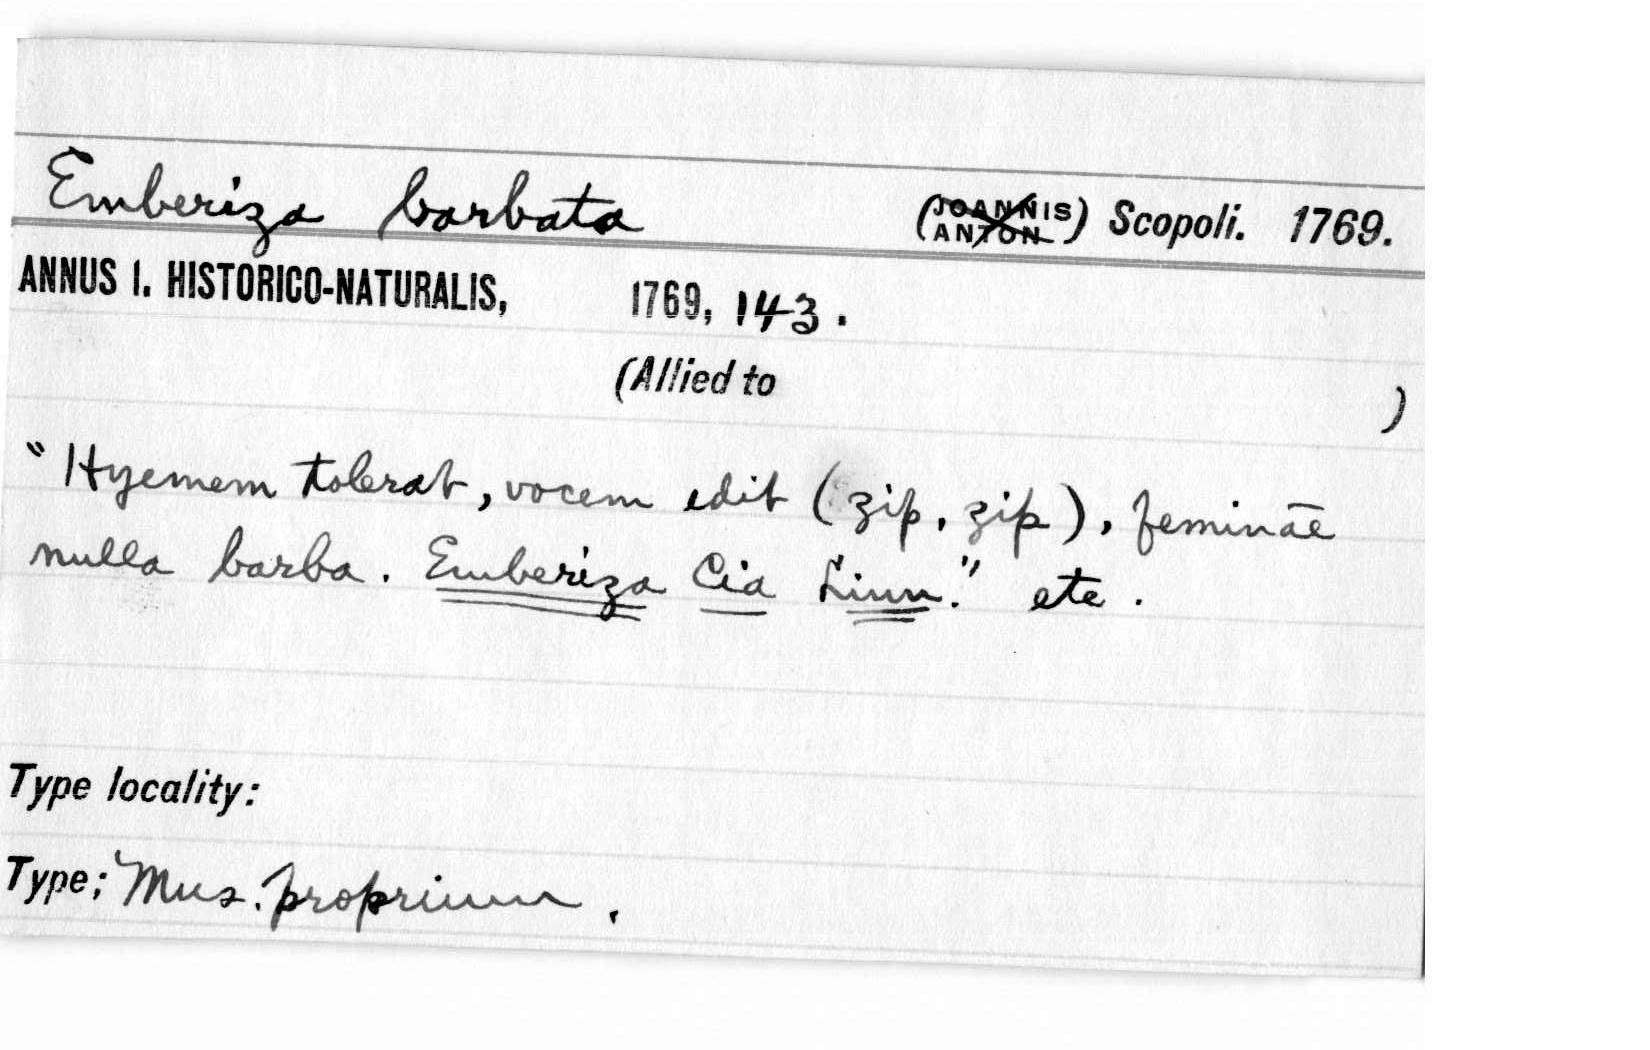 Emberiza barbata (JOANNIS ANTON) Scopoli. 1769.
ANNUS I. HISTORICO-NATURALIS, 1769, 143.
(Allied to )
"Hyemem tolerat, vocem edit (zip, zip), feminae
nulla barba. Emberiza Cia Linn." etc.
Type locality:
Type; Mus. proprium.